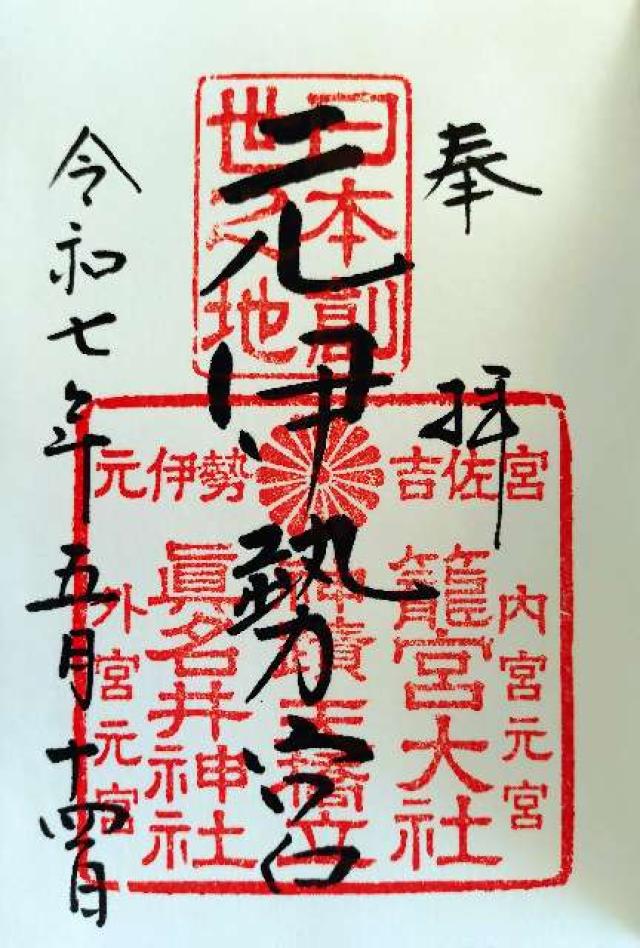 奉拝
日本創
世之地
元伊勢宮
吉佐宮
元伊勢
内宮元宮
籠宮大社
神蹟天橋立
眞名井神社
外宮元宮
令和七年五月十四日